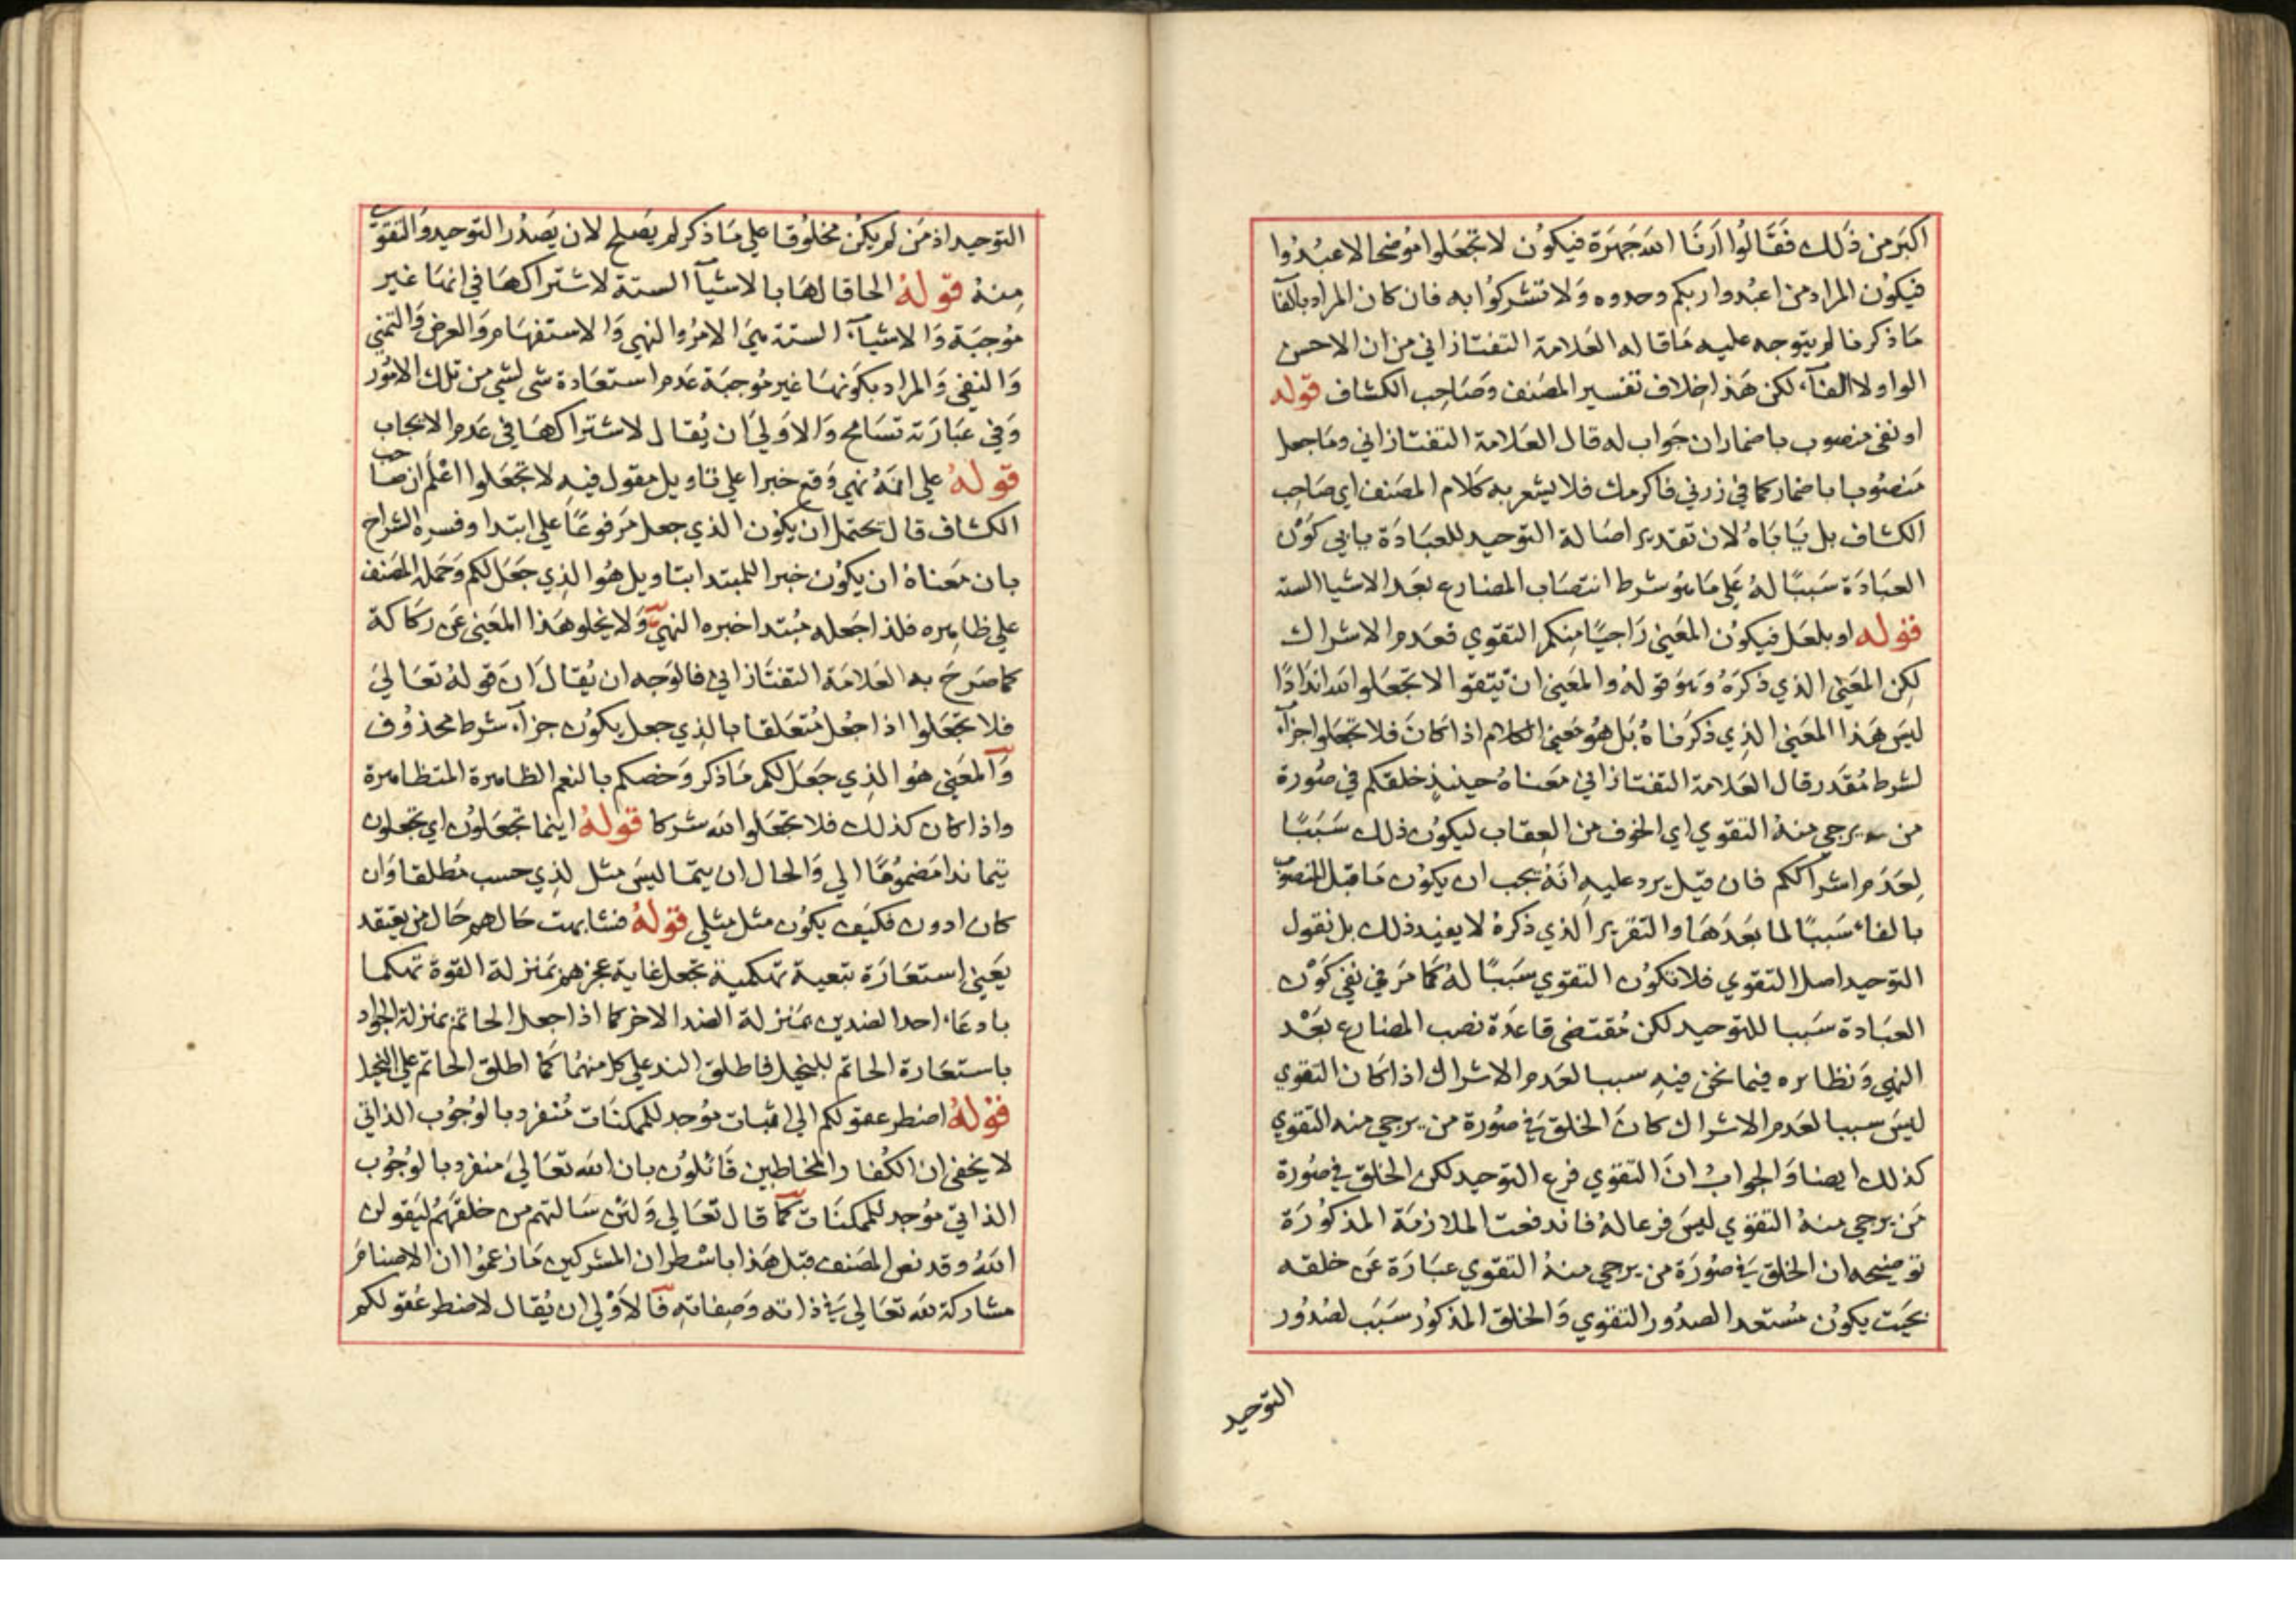 اكبر من ذلك فقالوا ارنا الله جهرة فيكون لا تجعلوا موضحا لاعبدوا
فيكون المراد من اعبدوا ربكم وحدوه ولا تشركوا به فان كان المراد بالفا
ما ذكرنا لم يتوجه عليه ما قاله العلامة التفتازاني من ان الاحسن
الواو لا الفآء لكن هذا خلاف تفسير المصنف وصاحب الكشاف قوله
او نفى منصوب باضمار ان جواب له قال العلامة التفتازاني وما جعل
منصوبا باضمار كما في زرني فاكرمك فلا يشعر به كلام المصنف اي صاحب
الكشاف بل ياباه لان تقدير اصالة التوحيد للعبادة يابى كون
العبادة سببا له على ما هو شرط انتصاب المضارع بعد الاشيا الستة
قوله او بلعل فيكون المعنى راجيا منكم التقوي فعدم الاشراك
لكن المعنى الذي ذكره وهو قوله والمعنى ان تتقوا لا تجعلوا لله اندادا
ليس هذا المعنى الذي ذكرناه بل هو معنى الكلام اذا كان فلا تجعلوا جزآء
لشرط مقدر قال العلامة التفتازاني معناه حينئذ خلقكم في صورة
من يرجى منه التقوي اي الخوف من العقاب ليكون ذلك سببا
لعدم اشراككم فان قيل يرد عليه انه يجب ان يكون ما قبل المنصوب
بالفاء سببا لما بعدها والتقرير الذي ذكره لا يفيد ذلك بل نقول
التوحيد اصل التقوي فلا تكون التقوي سببا له كما مر في نفي كون
العبادة سببا للتوحيد لكن مقتضى قاعدة نصب المضارع بعد
النهي ونظايره فيما نحن فيه سببا لعدم الاشراك اذا كان التقوي
ليس سببا لعدم الاشراك كان الخلق في صورة من يرجي منه التقوي
كذلك ايضا والجواب ان التقوي فرع التوحيد لكن الخلق في صورة
من يرجي منه التقوي ليس فرعا له فاندفعت الملازمة المذكورة
توضيحه ان الخلق في صورة من يرجي منه التقوي عبارة عن خلقه
بحيث يكون مستعدا لصدور التقوي والخلق المذكور سبب لصدور
التوحيد
التوحيد اذ من لم يكن مخلوقا علي ما ذكر لم يصلح لان يصدر التوحيد والتقوي
منه قوله الحاقا لها بالاشيآ الستة لاشتراكها في انها غير
موجبة والاشيآء الستة هي الامر والنهي والاستفهام والعرض والتمني
والنفي والمراد بكونها غير موجبة عدم استعادة شي لشي من تلك الامور
وفي عبارته تسامح والاولي ان يقال لاشتراكها في عدم الايجاب
قوله علي انه نهي وقع خبرا علي تاويل مقول فيه لا تجعلوا اعلم ان صاحب
الكشاف قال يحتمل ان يكون الذي جعل مرفوعا علي ابتدا وفسره الشراح
بان معناه ان يكون خبرا للمبتدا بتاويل هو الذي جعل لكم وحمله المصنف
علي ظاهره فلذا جعله مبتدا خبره النهي ولا يخلو هذا المعنى عن ركاكة
كما صرح به العلامة التفتازاني فالوجه ان يقال ان قوله تعالي
فلا تجعلوا اذا جعل متعلقا بالذي جعل يكون جزآء شرط محذوف
والمعني هو الذي جعل لكم ما ذكر وخصكم بالنعم الظاهرة المتظاهرة
واذا كان كذلك فلا تجعلوا لله شركا قوله اينما تجعلون اي تجعلون
تيما ندا مضموما الي والحال ان يتما ليس مثل لذي حسب مطلقا وان
كان ادون فكيف يكون مثل مثلي قوله فشابهت حالهم حال من يعتقد
يعني استعارة تبعية تهكمية تجعل غاية عجزهم بمنزلة القوة تهكما
بادعاء احد الضدين بمنزلة الضد الاخر كما اذا جعل الحاتم بمنزلة الجواد
باستعارة الحاتم للبخيل فاطلق الند علي كل منهما كما اطلق الحاتم علي البخيل
قوله اضطر عقولكم الي اثبات موجد للممكنات منفرد بالوجوب الذاتي
لا يخفي ان الكفار والمخاطبين قائلون بان الله تعالي منفرد بالوجوب
الذاتي موجد للممكنات كما قال تعالي ولئن سالتهم من خلقهم ليقولن
الله وقد نص المصنف قبل هذا باسطر ان المشركين ما زعموا ان الاصنام
مشاركة لله تعالي في ذاته وصفاته فالاولي ان يقال لاضطر عقولكم